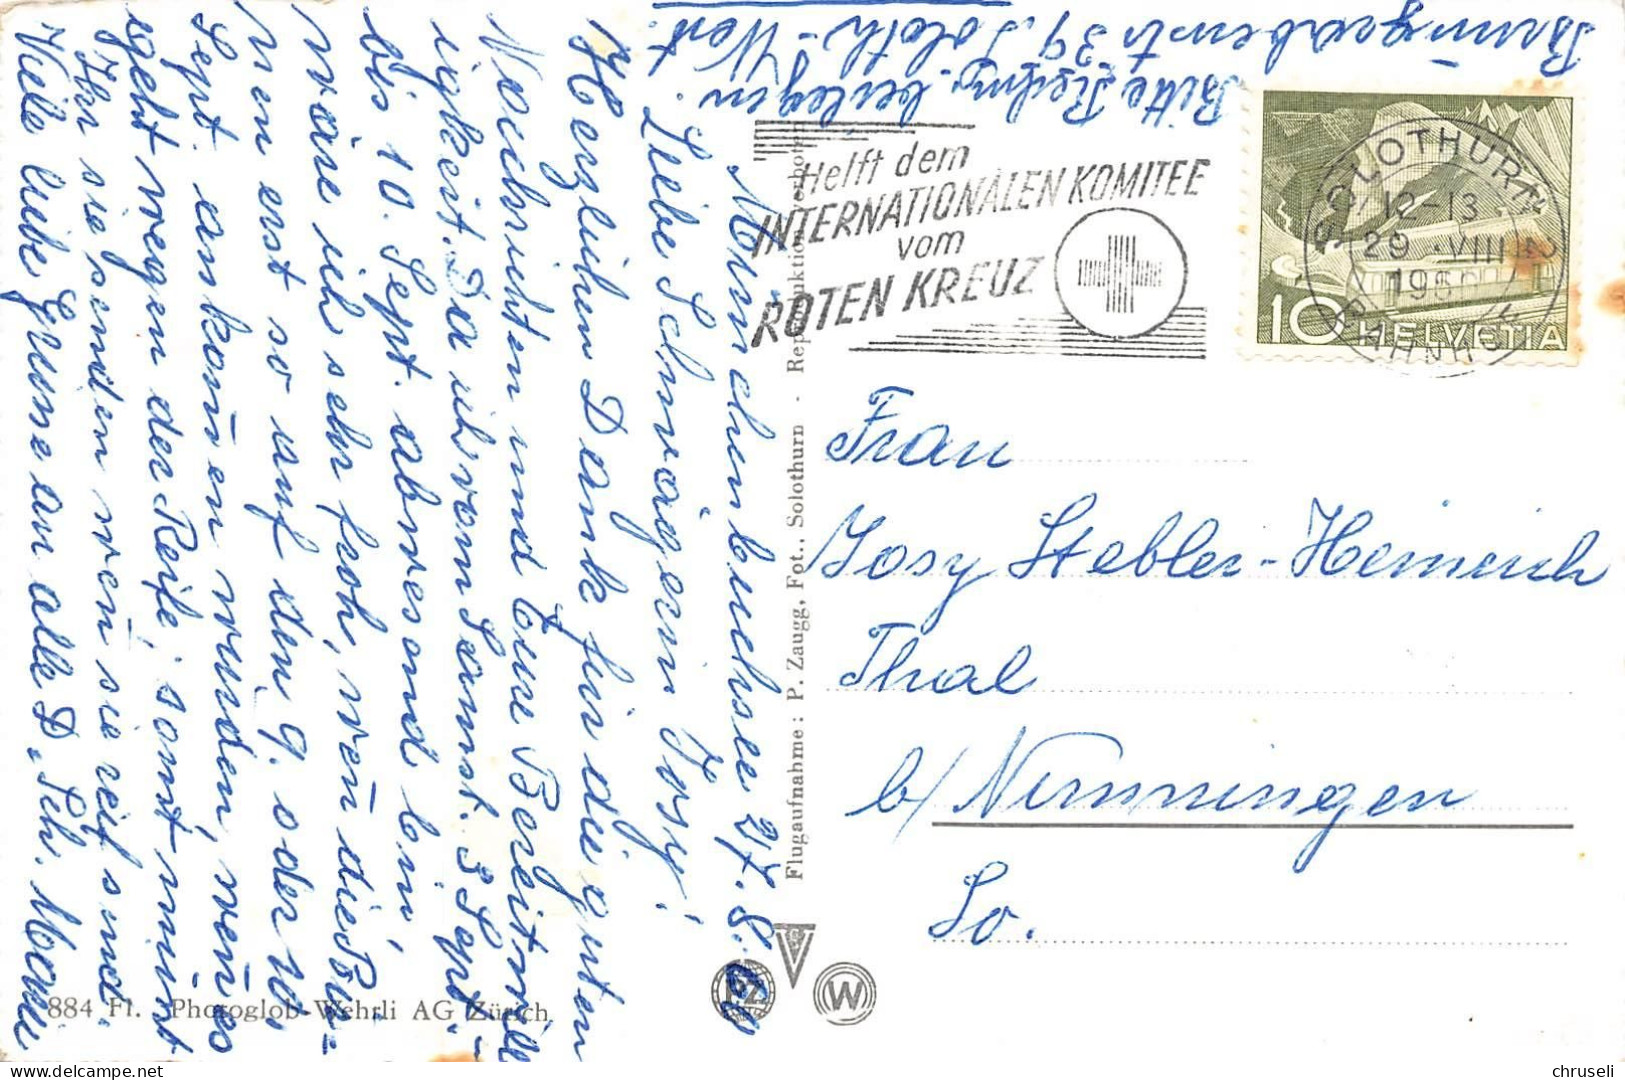 Münchenbuchsee 27. 8. 60
Liebe Schwägerin Josy!
Herzlichen Dank für die guten
Nachrichten und Eure Bereitwill
igkeit. Da ich vom Samst. 3 Sept. -
bis 10. Sept. abwesend bin,
wäre ich sehr froh, wen̄ die Bir-
nen erst so auf den 9. oder 10.
Sept. ankom̄en würden, wen̄ es
geht wegen der Reife, sonst müsst
Ihr sie senden wen̄ sie reif sind.
Viele liebe Grüsse an alle D. Sch. Marie
Bitte Rechng. beilegen.
39, Soloth-West.
Helft dem
INTERNATIONALEN KOMITEE
vom
ROTEN KREUZ
SOLOTHURN 2
12-13
29. VIII
19
BAHNHOF
10 HELVETIA
Frau
Josy Stebler-Heinrich
Thal
b/ Nunningen
So.
Flugaufnahme: P. Zaugg, Fot., Solothurn - Reproduktion verboten
884 Fl. Photoglob-Wehrli AG Zürich
PZ
W
chruseli